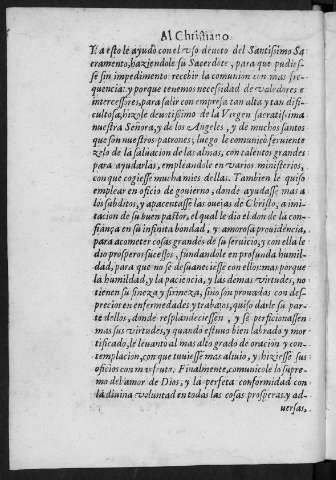 Al Christiano.
Y a esto le ayudò con el vso deuoto del Santissimo Sa
cramento, haziendole su Sacerdote, para que pudies-
se sin impedimento recibir la comunion con mas fre
quencia: y porque tenemos necessidad de valedores e
intercessores, para salir con empresa tan alta y tan difi
cultosa, hizole deuotissimo de la Virgen sacratissima
nuestra Señora, y de los Angeles, y de muchos santos
que son nuestros patrones; luego le comunicò feruiente
zelo de la saluacion de las almas, con talentos grandes
para ayudarlas, empleandole en varios ministerios,
con que cogiesse mucha mies dellas. Tambien le quiso
emplear en oficio de gouierno, donde ayudasse mas a
los subditos, y apacentasse las ouejas de Christo, a imi-
tacion de su buen pastor, el qual le dio el don de la con-
fiança en su infinita bondad, y amorosa prouidencia,
para acometer cosas grandes de su seruicio, y con ella le
dio prosperos sucessos, fundandole en profunda humil-
dad, para que no se desuaneciesse con ellos: mas porque
la humildad, y la paciencia, y las demas virtudes, no
tienen su fineza y firmeza, sino son prouadas con des-
precios, enfermedades y trabajos, quiso darle su par-
te dellos, donde resplandeciessen, y se perficionassen
mas sus virtudes, y quando estuuo bien labrado y mor-
tificado, le leuantò al mas alto grado de oracion y con-
templacion, con que tuuiesse mas aliuio, y hiziesse sus
oficios con mas fruto. Finalmente, comunicole lo supre-
mo del amor de Dios, y la perfeta conformidad con
la diuina voluntad en todas las cosas prosperas y ad-
uersas,